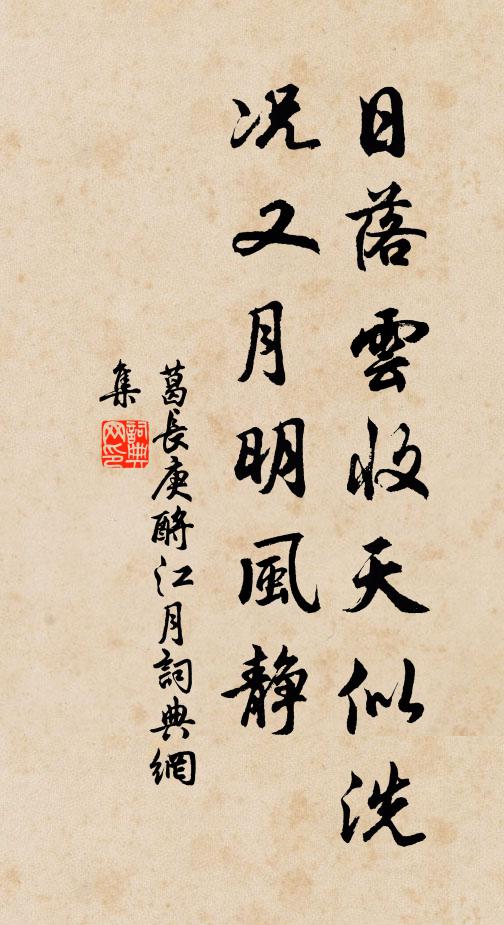 日落雲收天似洗
况又月明風靜
葛長庚酹江月詞典網
集
詞典
网印